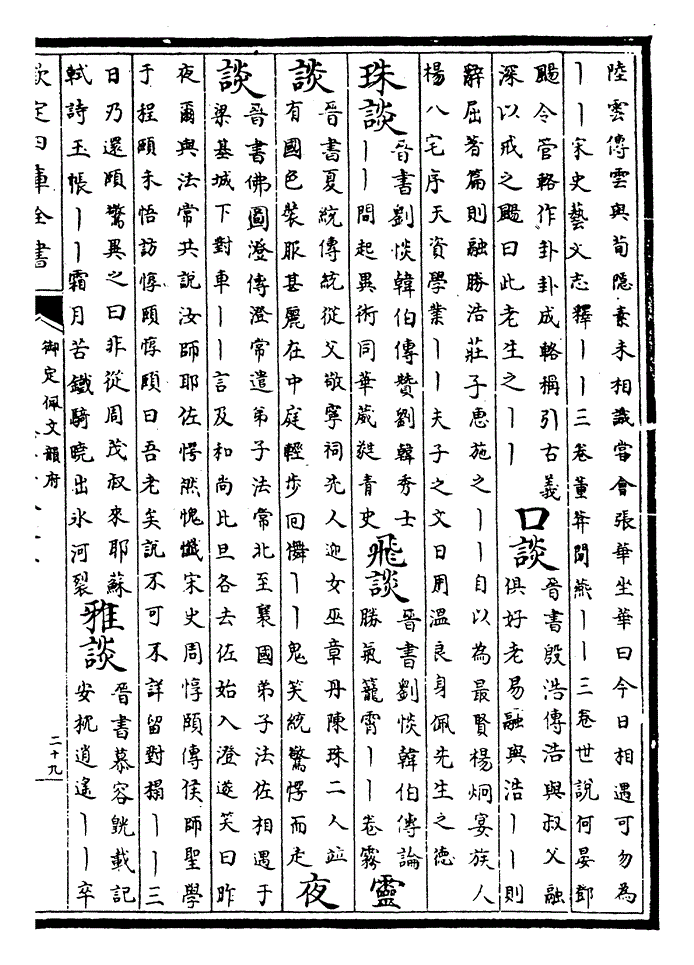 陸雲傳雲與荀隱素未相識嘗會張華坐華曰今日相遇可勿為
丨丨宋史藝文志釋丨丨三卷董弅閒燕丨丨三卷世說何晏鄧
颺令管輅作卦卦成輅稱引古義
深以戒之颺曰此老生之丨丨
口談
晉書殷浩傳浩與叔父融
俱好老易融與浩丨丨則
辭屈著篇則融勝浩莊子惠施之丨丨自以為最賢楊炯宴族人
楊八宅序天資學業丨丨夫子之文日用溫良身佩先生之德
珠談
晉書劉惔韓伯傳贊劉韓秀士
丨丨間起異術同華葳蕤青史
飛談
晉書劉惔韓伯傳論
勝氣籠霄丨丨卷霧
靈
談
晉書夏統傳統從父敬寧祠先人迎女巫章丹陳珠二人竝
有國色裝服甚麗在中庭輕步佪儛丨丨鬼笑統驚愕而走
夜
談
晉書佛圖澄傳澄常遣弟子法常北至襄國弟子法佐相遇于
梁基城下對車丨丨言及和尚比旦各去佐始入澄遂笑曰昨
夜爾與法常共說汝師耶佐愕然愧懺宋史周惇頤傳侯師聖學
于程頤未悟訪惇頤惇頤曰吾老矣說不可不詳留對榻丨丨三
日乃還頤驚異之曰非從周茂叔來耶蘇
軾詩玉帳丨丨霜月苦鐵騎曉出氷河裂
雅談
晉書慕容皝載記
安枕逍遙丨丨卒
欽定四庫全書
御定佩文韻府
二十九